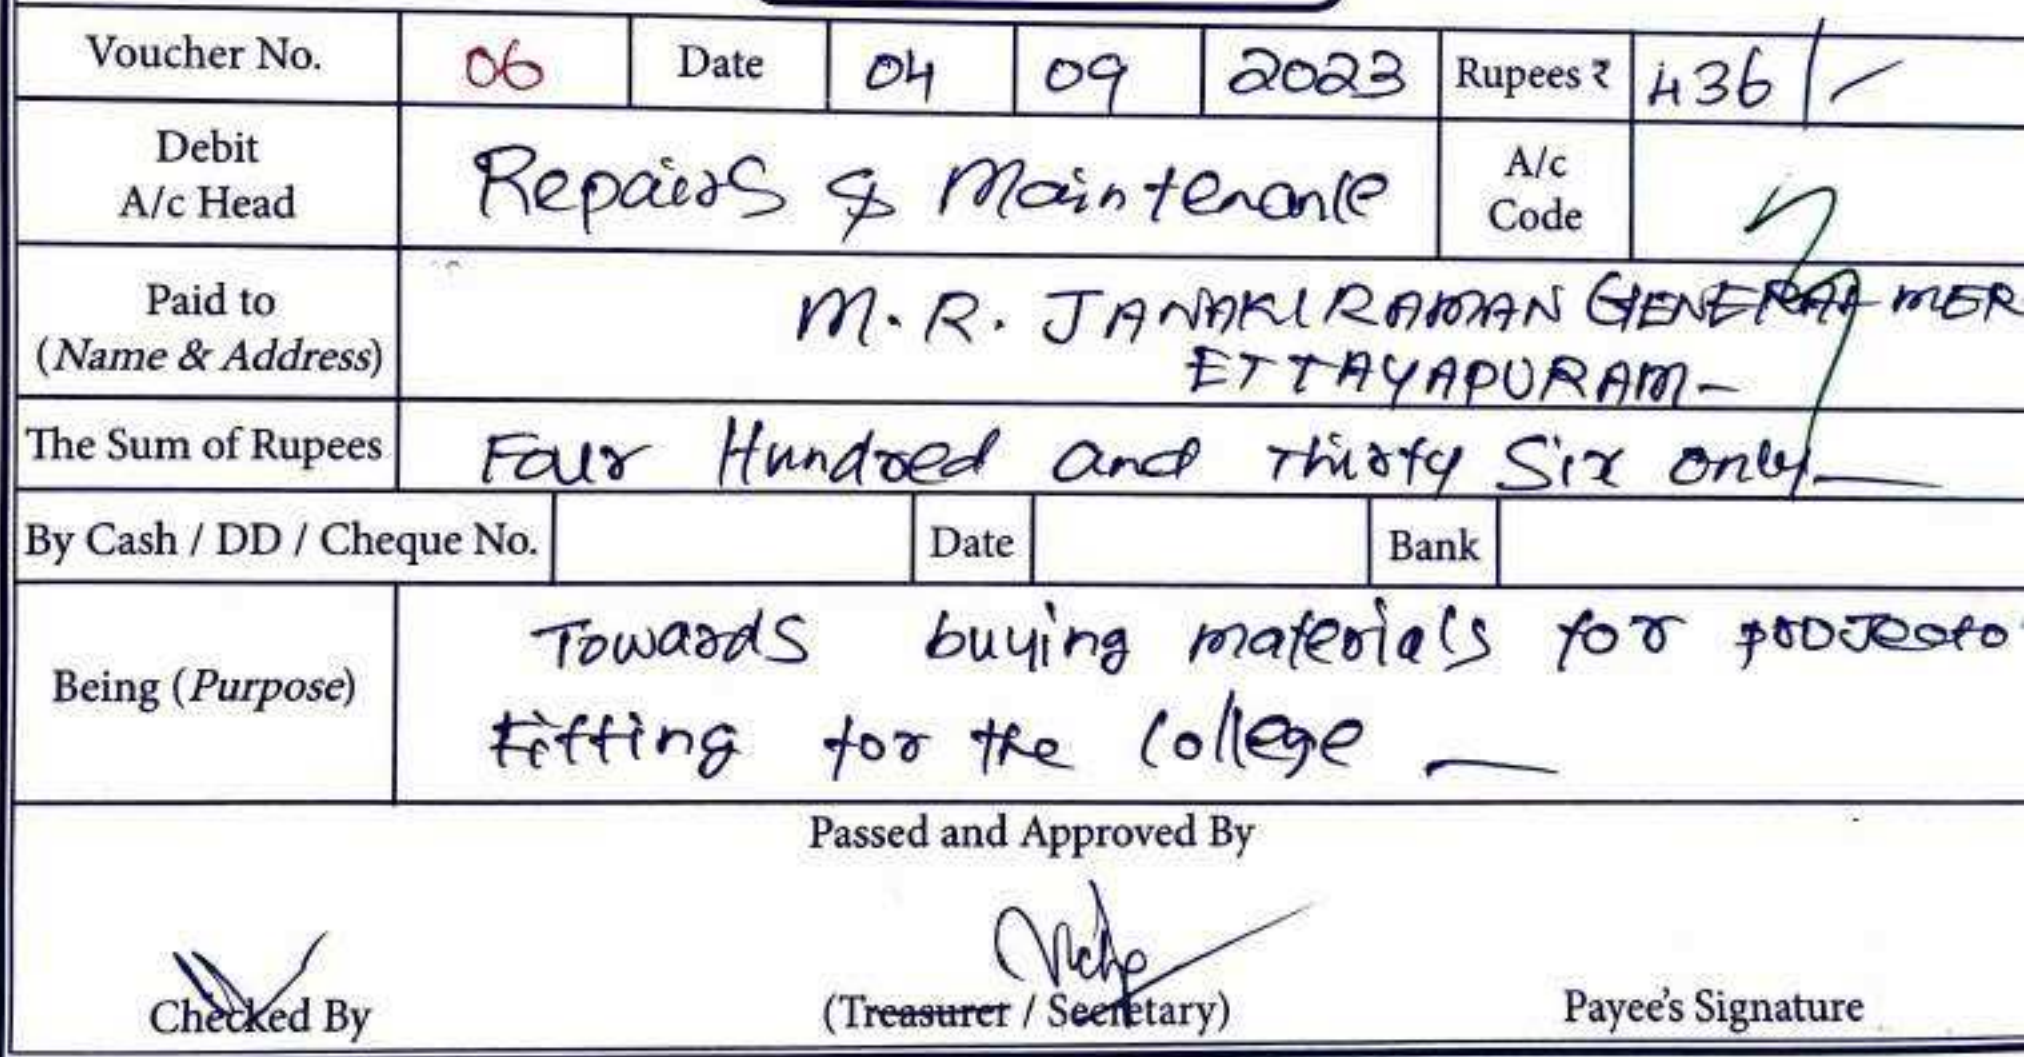 Voucher No. 06 Date 04 09 2023 Rupees ₹ 436/-
Debit A/c Head Repairs & Maintenance A/c Code
Paid to (Name & Address) M. R. JANAKIRAMAN GENERAL MER
ETTAYAPURAM-
The Sum of Rupees Four Hundred and Thirty Six only
By Cash / DD / Cheque No. Date Bank
Being (Purpose) Towards buying materials for projecto
fitting for the College
Passed and Approved By
Checked By (Treasurer / Secretary) Payee's Signature